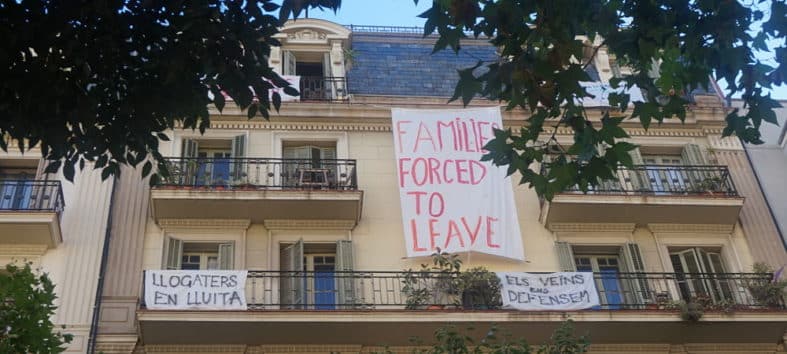 FAMILIE
FORCED
TO
LEAVE
LLOGATERS
EN LLUITA
ELS VEÏNS
ENS
DEFENSEM